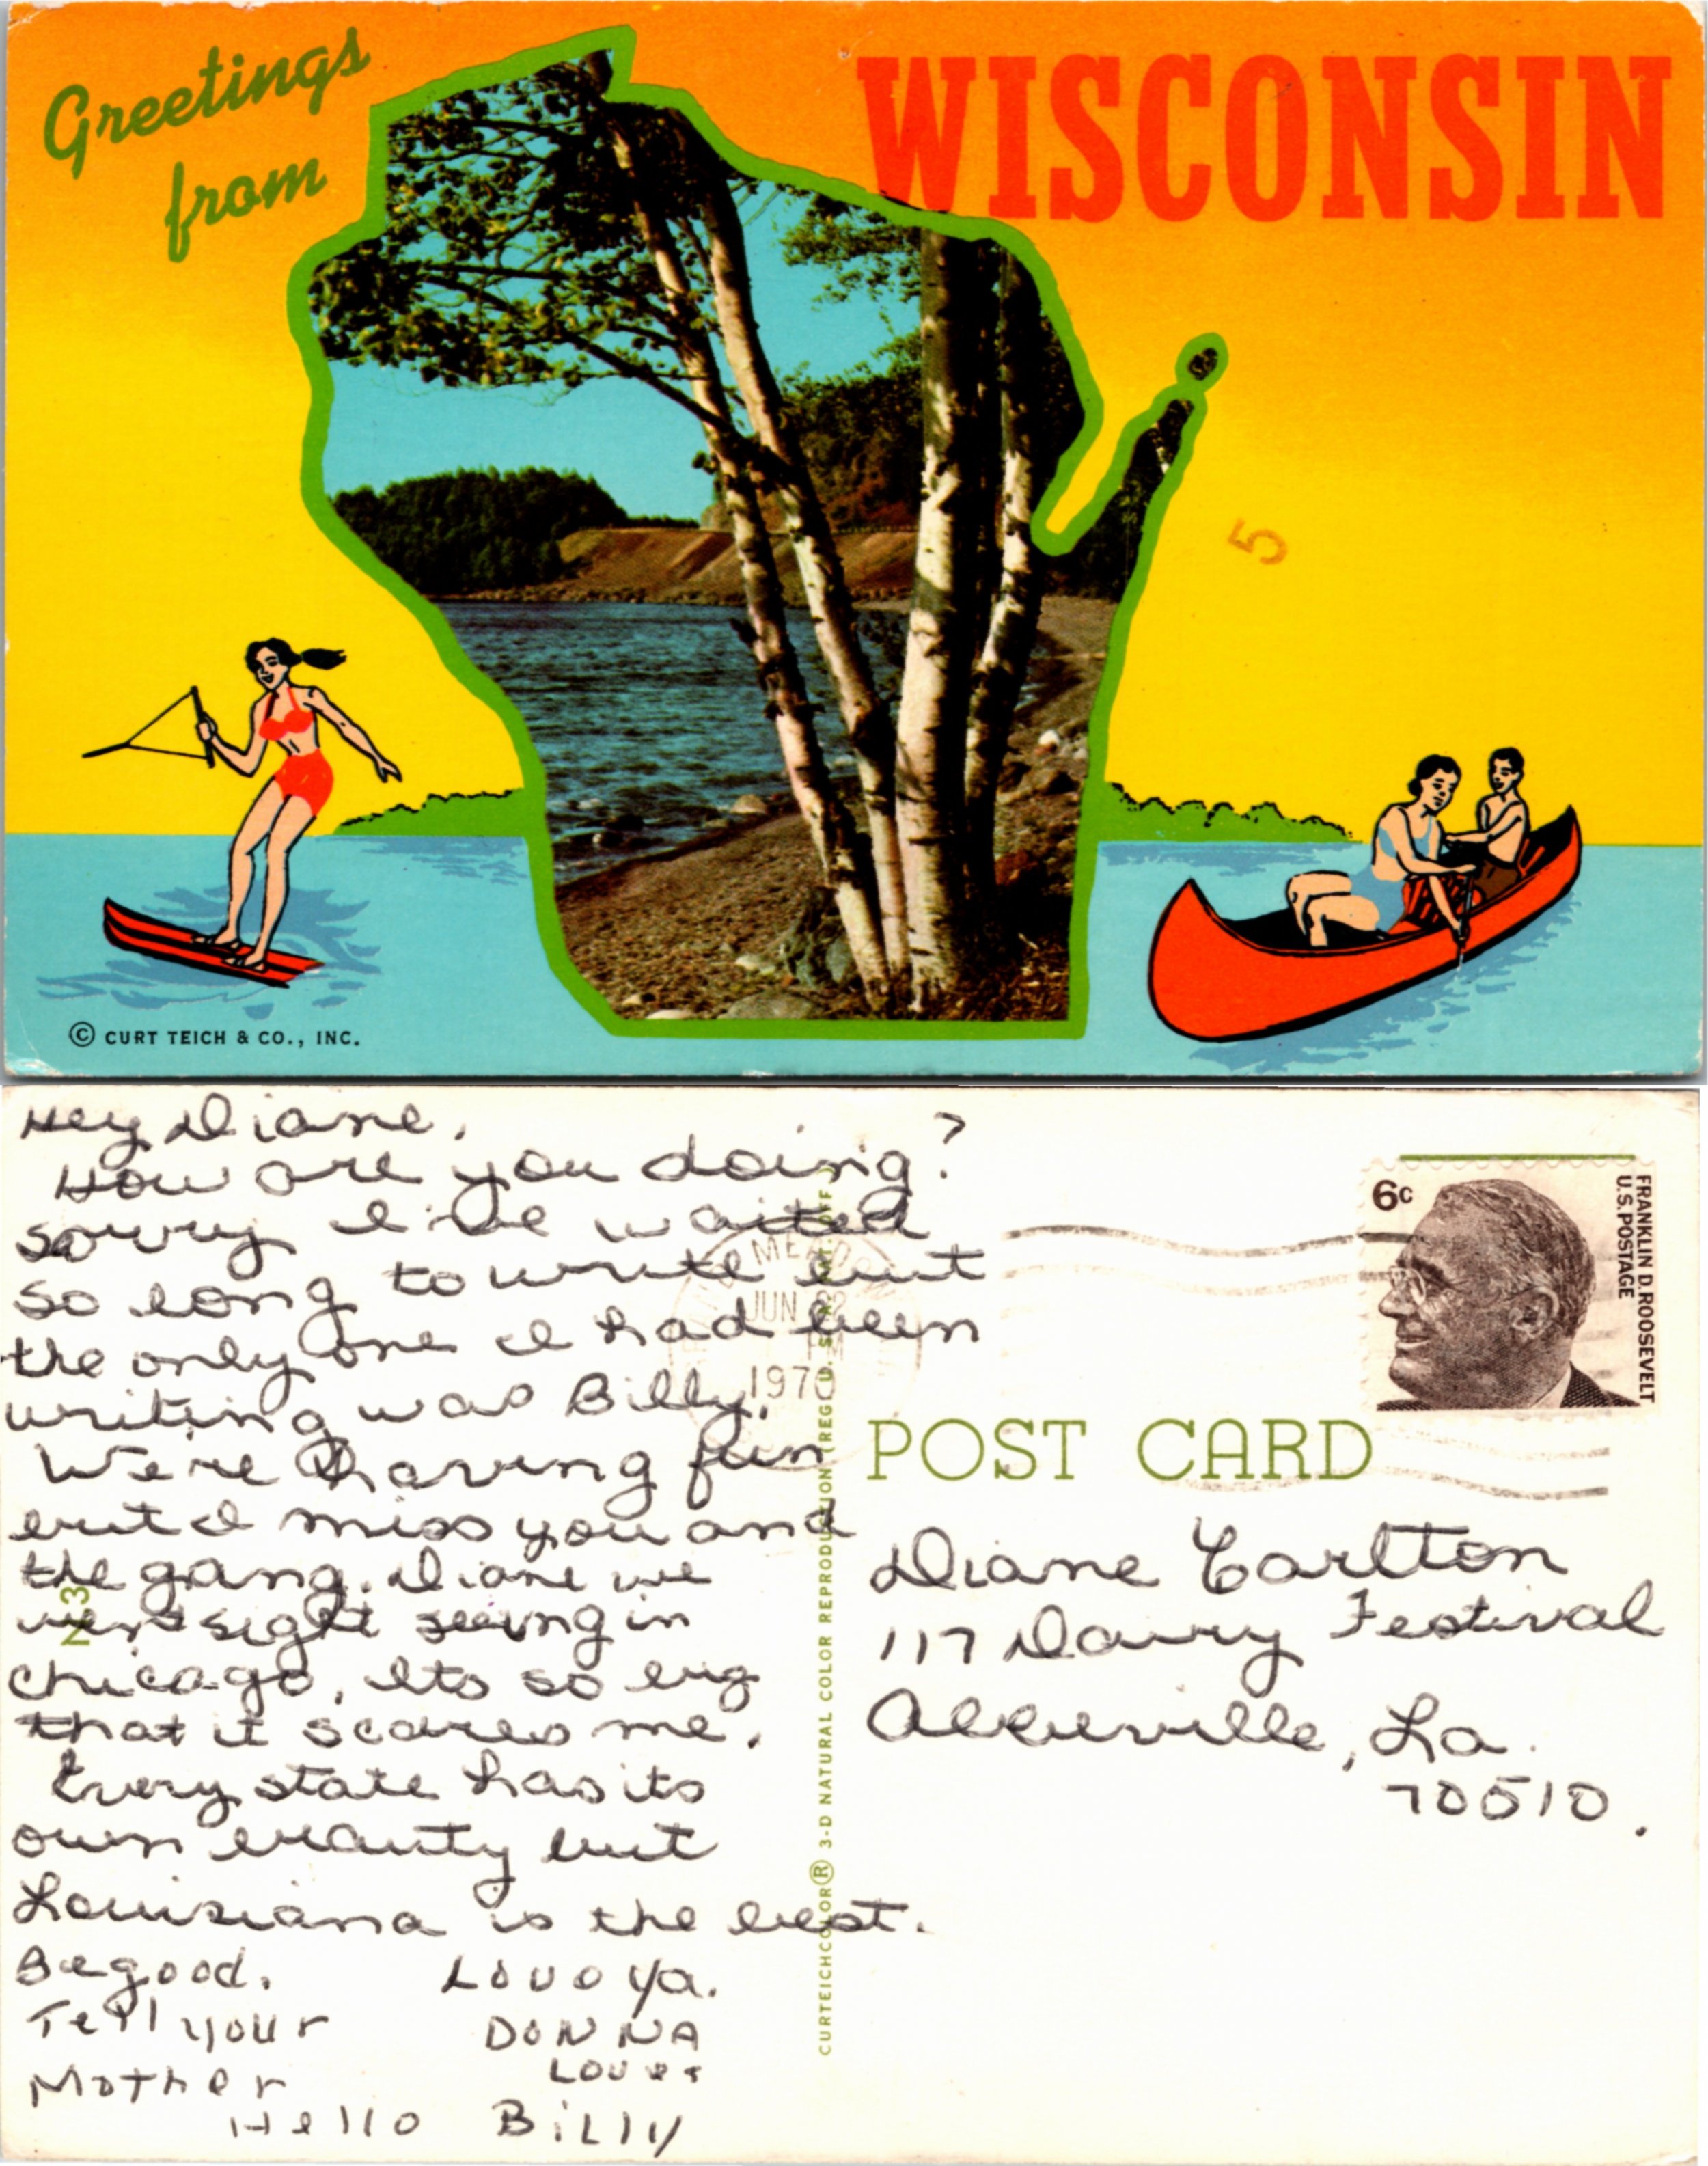 Greetings
from
WISCONSIN
5
© CURT TEICH & CO., INC.
Hey Diane,
How are you doing?
sorry I've waited
so long to write but
the only one I had been
writing was Billy.
We're having fun
but I miss you and
the gang. Diane we
went sight seeing in
chicago, Its so big
that it scares me.
Every state has its
own beauty but
Louisiana is the best.
Be good.
Tell your
Mother
Hello
Love ya.
DONNA
Loves
BiLly
N 3
CURTEICHCOLOR® 3-D NATURAL COLOR REPRODUCTION (REG'D. U.S.
JUN 22
PM
1970
6c
FRANKLIN D. ROOSEVELT
U.S. POSTAGE
POST CARD
Diane Carlton
117 Dairy Festival
Abbeville, La.
70510.